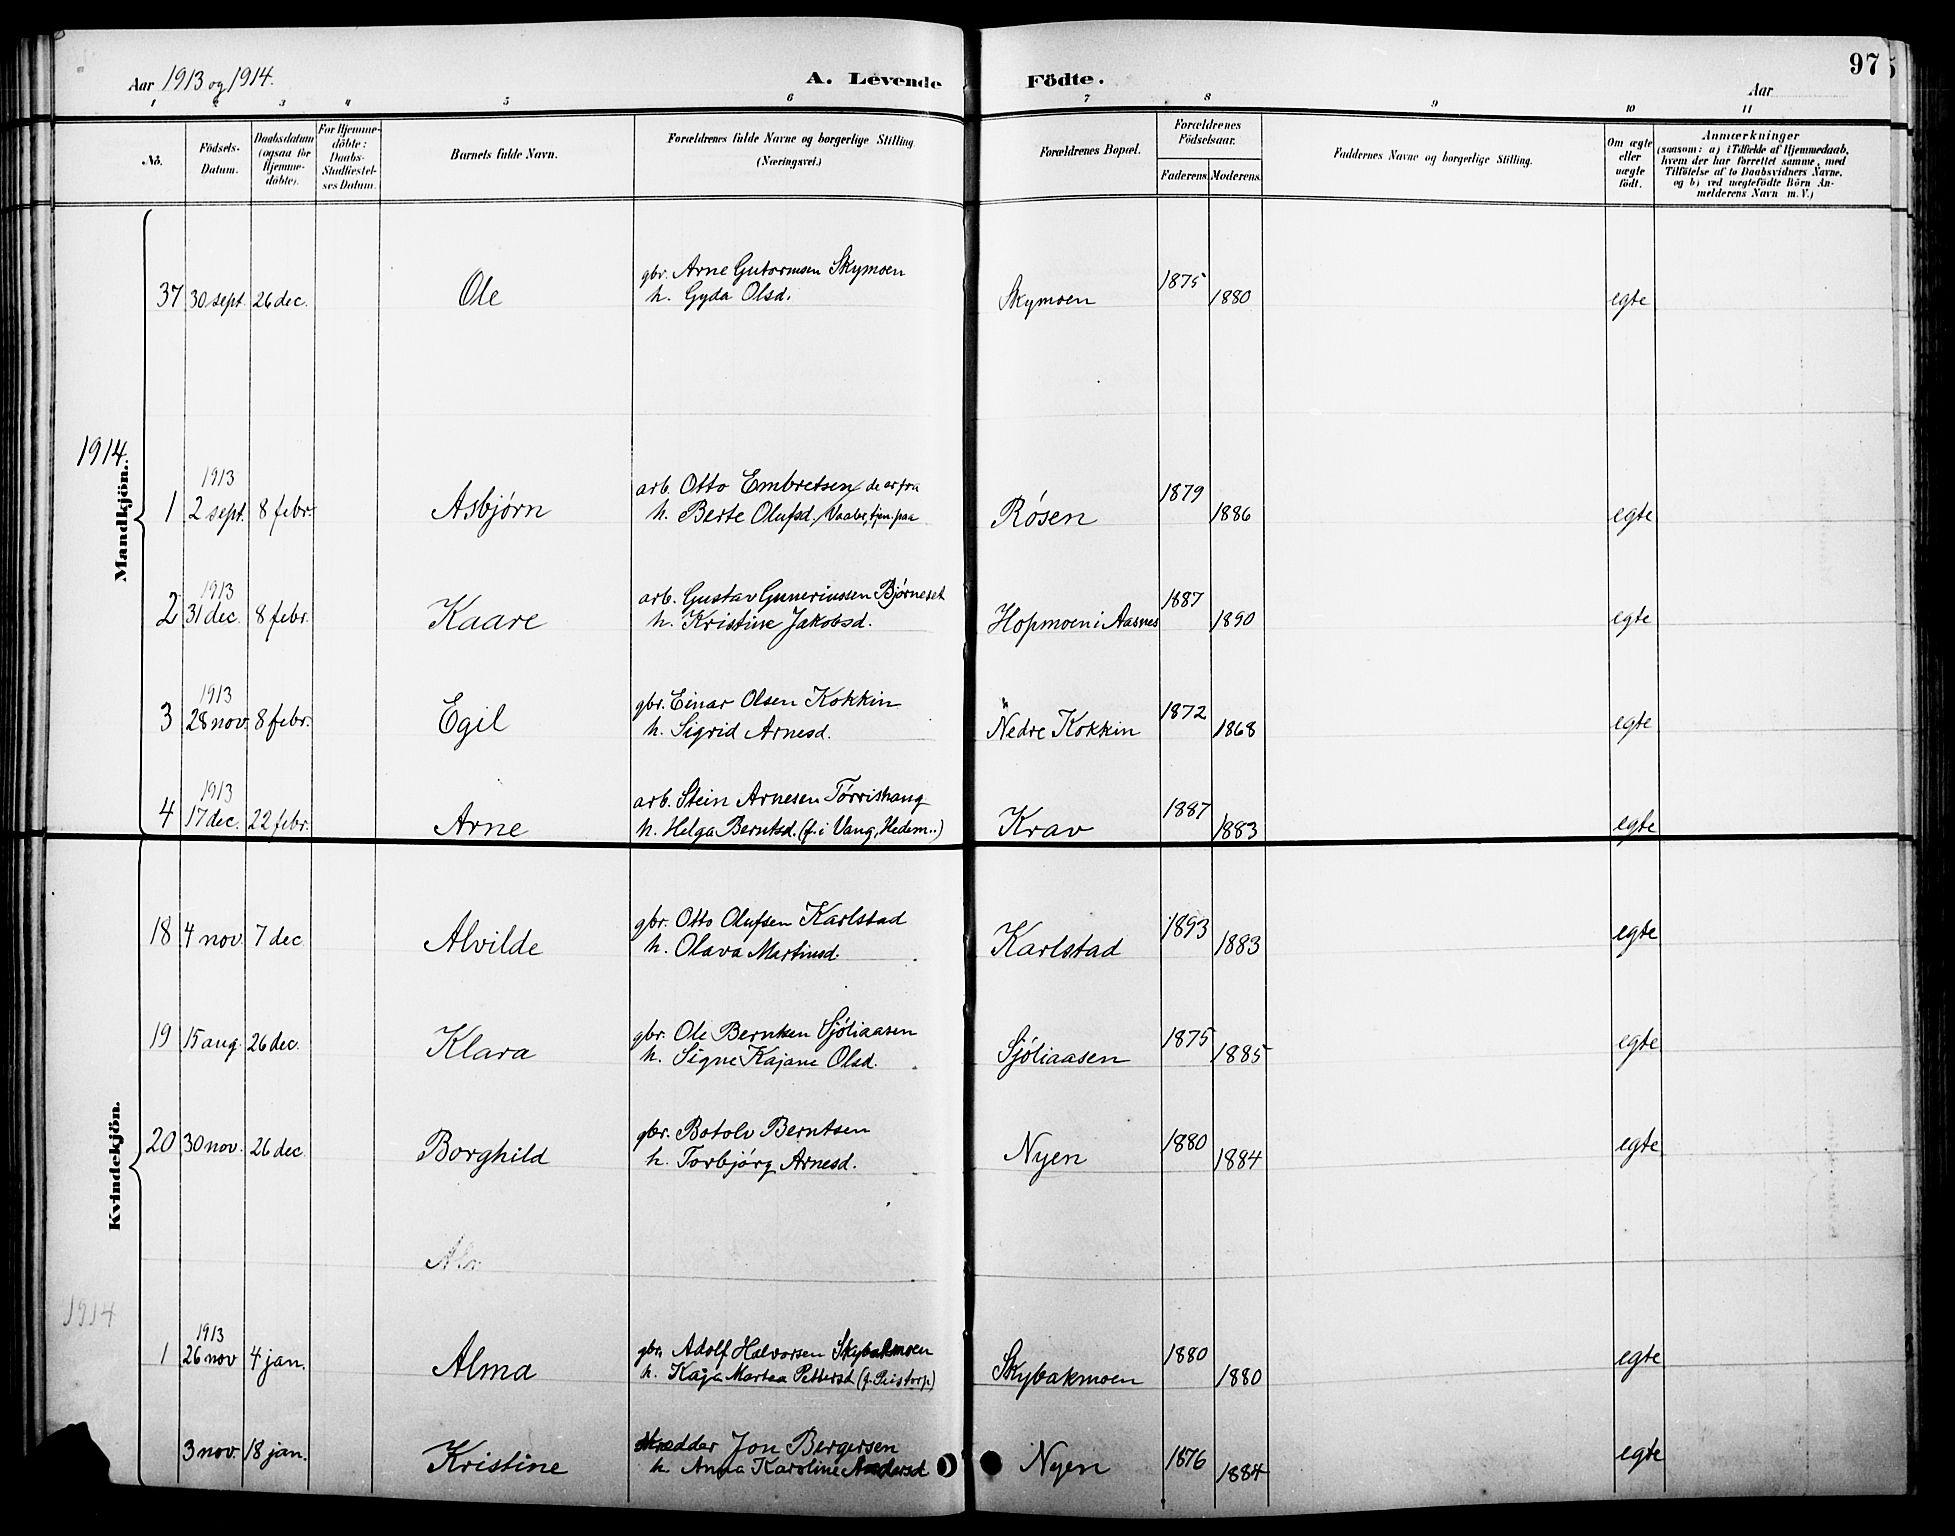 Aar 1913 og 1914. A. Levende Födte. Aar 97
1 2 3 4 5 6 7 8 9 10 11
No. Födsels-Datum. Daabsdatum (ogsaa for Hjemme-döbte). For Hjemme-döbte: Daabs-Stadfæstel-ses Datum. Barnets fulde Navn. Forældrenes fulde Navne og borgerlige Stilling (Næringsvei.) Forældrenes Bopæl. Forældrenes Födselsaar. Faderens. Moderens. Faddernes Navne og borgerlige Stilling. Om ægte eller uægte födt. Anmærkninger (saasom: a) i Tilfælde af Hjemmedaab, hvem der har forrettet samme, med Tilföielse af to Daabsvidners Navne, og b) ved uægtefödte Börn An-melderens Navn m. V.)
Mandkjön.
37 30 sept. 26 dec. Ole gbr. Arne Gutormsen Skymoen
h. Gyda Olsd. Skymoen 1875 1880 egte
1914
1913
1 2 sept. 8 febr. Asbjørn arb. Otto Embretsen, de er fra
h. Berte Olufsd. Vaaler, tjen. paa Røsen 1879 1886 egte
1913
2 31 dec. 8 febr. Kaare arb. Gustav Guneriussen Bjørneset
h. Kristine Jakobsd. Hopmoen i Aasnes 1887 1890 egte
1913
3 28 nov. 8 febr. Egil gbr. Einar Olsen Kokkin
h. Sigrid Arnesd. Nedre Kokkin 1872 1868 egte
1913
4 17 dec. 22 febr. Arne arb. Stein Arnesen Tørrishaug
h. Helga Berntsd. (f. i Vang, Hedem..) Krav 1887 1883 egte
Kvindekjön.
18 4 nov. 7 dec Alvilde gbr. Otto Olufsen Karlstad
h. Olava Martinsd. Karlstad 1893 1883 egte
19 15 aug. 26 dec. Klara gbr. Ole Berntsen Sjøliaasen
h. Signe Kajane Olsd. Sjøliaasen 1875 1885 egte
20 30 nov. 26 dec Borghild gbr. Botolv Berntsen
h. Torbjørg Arnesd. Nyen 1880 1884 egte
1914
1913
1 26 nov 4 jan. Alma gbr. Adolf Halvorsen Skybakmoen
h. Kaja Martea Pettersd Skybakmoen 1880 1880 egte
3 nov. 18 jan. Kristine skredder Jon Bergersen
h. Anna Karoline Andersd Nyen 1876 1884 egte